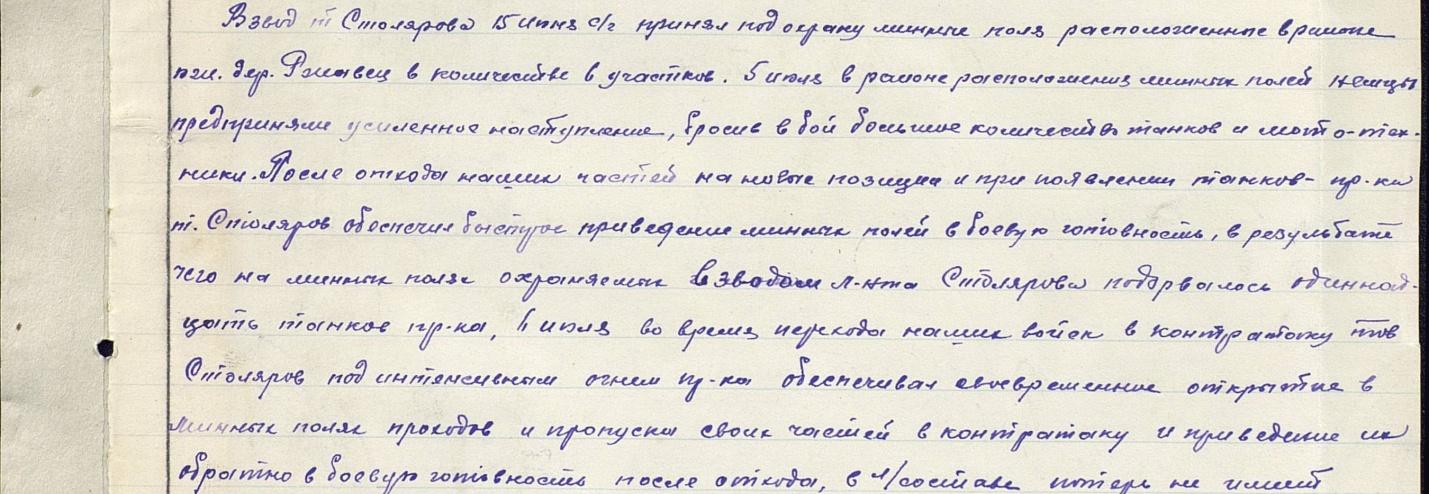 Взвод т Столярова 15 июня с/г принял под охрану минные поля расположенные в районе
дер. Ржавец в количестве 8 участков. 5 июля в районе расположения минных полей немцы
предприняли усиленное наступление, бросив в бой большое количество танков и мото-тех-
ники. После отхода наших частей на новые позиции и при появлении танков пр-ка
т. Столяров обеспечил быстрое приведение минных полей в боевую готовность, в результате
чего на минных полях охраняемых взводом л-нта Столярова подорвалось одиннад-
цать танков пр-ка, июля во время перехода наших войск в контратаку тов
Столяров под интенсивным огнем пр-ка обеспечивал своевременное открытие в
минных полях проходов и пропуска своих частей в контратаку и приведение их
обратно в боевую готовность после отхода, в л/составе потерь не имеет